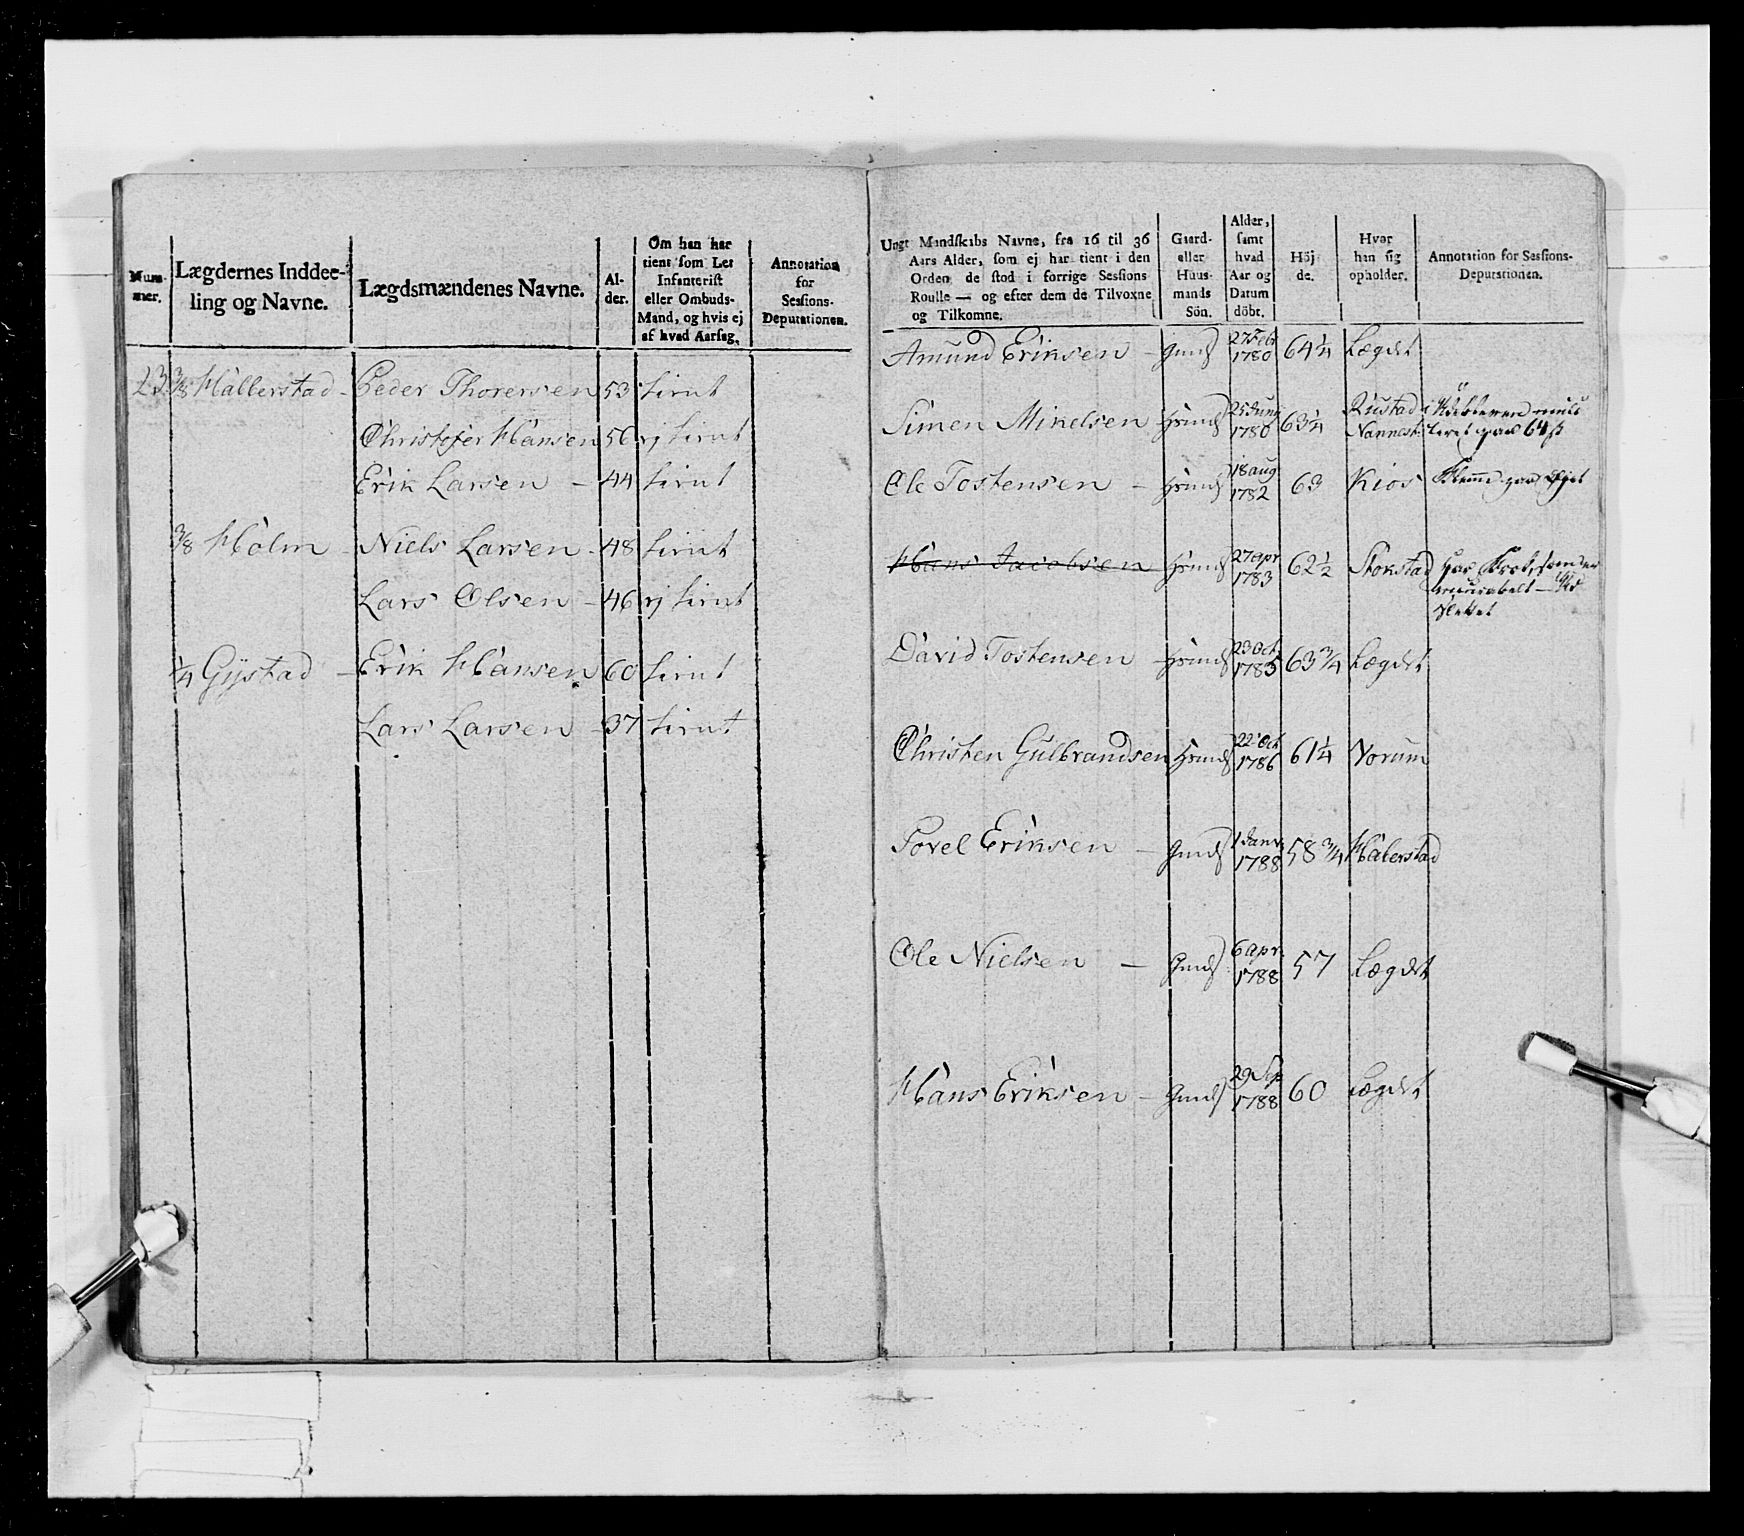 Num-
mer.
Lægdernes Inddee-
ling og Navne.
Lægdsmændenes Navne.
Al-
der.
Om han har
tient som Let
Infanterist
eller Ombuds-
Mand, og hvis ej
af hvad Aarsag.
Annotation
for
Sessions-
Deputationen.
23 3/8 Halberstad - Peder Thorersen 53 tient
Christofer Hansen 56 ej tient
Erik Larsen - 44 tient
3/8 Holm - Niels Larsen - 48 tient
Lars Olsen - 46 ej tient
1/4 Gystad - Erik Hansen 60 tient
Lars Larsen - 37 tient
Ungt Mandskabs Navne, fra 16 til 36
Aars Alder, som ej har tient i den
Orden de stod i forrige Sessions
Roulle — og efter dem de Tilvoxne
og Tilkomne.
Gaard-
eller
Huus-
mands
Sön.
Alder,
samt
hvad
Aar og
Datum
döbt.
Höj-
de.
Hvor
han sig
opholder.
Annotation for Sessions-
Deputationen.
Amund Eriksen - Gmds 27 Feb 1780 64 1/4 Lægdet
Simen Mikelsen - Hsmds 25 Juny 1780 63 1/4 Rustad i Nannest:
Ole Tostensen - Hsmds 18 aug 1782 63 Kios
Hans Jacobsen - Hsmds 27 apr 1783 62 1/2 Stokstad
David Tostensen - Hsmds 23 Oct 1785 63 3/4 Lægdet
Christen Gulbrandsen Hsmds 22 Oct 1786 61 1/4 Vorum
Povel Eriksen - Gmds 1 Janv. 1788 58 3/4 Halberstad
Ole Nielsen - Gmds 6 apr. 1788 57 Lægdet
Hans Eriksen - Gmds 29 Sep 1788 60 Lægdet